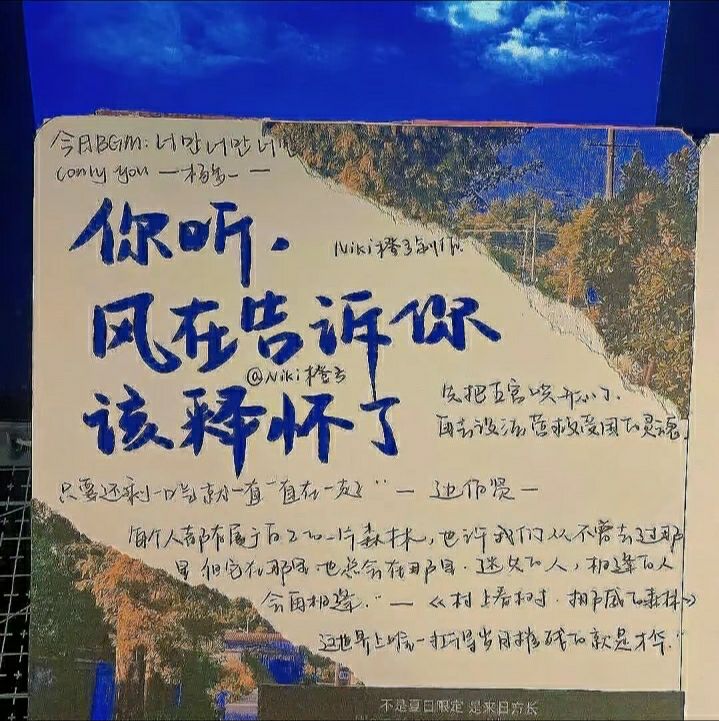 今日BGM:너만너만너만
(only you —杨—
你听.
Niki橙子制作.
风在告诉你
@Niki橙子
该释怀了
先把五官哄开心了.
再去设法营救受困的灵魂.
只要还剩一 就一直一直在一起" — 边伯贤 —
每个人都有属于自己的一片森林,也许我们从不曾去过那
里 但它在那里 也总会在那里. 迷失的人,相逢的人
会再相逢." — 《村上春树. 挪威的森林》
这世界上唯一扛得岁月摧残的就是才华."
不是夏日限定 是来日方长